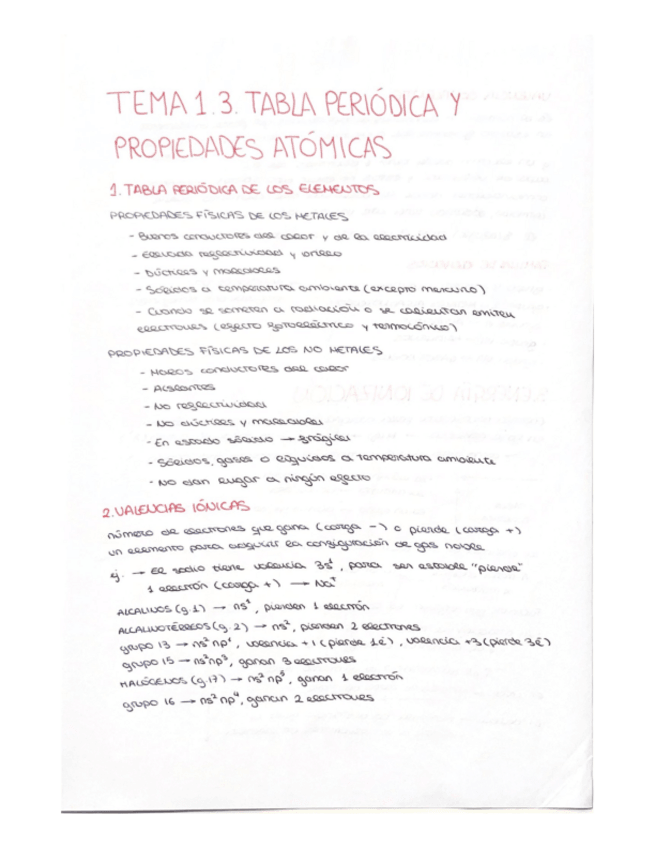 TEMA 1.3. TABLA PERIÓDICA Y
PROPIEDADES ATÓMICAS
1. TABLA PERIÓDICA DE LOS ELEMENTOS
PROPIEDADES FÍSICAS DE LOS METALES
- Buenos conductores del calor y de la electricidad
- Elevada reflectividad y brillo
- Dúctiles y maleables
- Sólidos a temperatura ambiente (excepto mercurio)
- Cuando se someten a radiación o se calientan emiten
electrones (efecto fotoeléctrico y termoiónico)
PROPIEDADES FÍSICAS DE LOS NO METALES
- Malos conductores del calor
- Aislantes
- No reflectividad
- No dúctiles y maleables
- En estado sólido → frágiles
- Sólidos, gases o líquidos a temperatura ambiente
- No dan lugar a ningún efecto
2. VALENCIAS IÓNICAS
número de electrones que gana (carga -) o pierde (carga +)
un elemento para adquirir la configuración de gas noble
ej. → El sodio tiene valencia 3s¹, para ser estable "pierde"
1 electrón (carga +) → Na⁺
ALCALINOS (g.1) → ns¹, pierden 1 electrón
ALCALINOTÉRREOS (g.2) → ns², pierden 2 electrones
grupo 13 → ns² np¹, valencia +1 (pierde 1é), valencia +3 (pierde 3é)
grupo 15 → ns² np³, ganan 3 electrones
HALÓGENOS (g.17) → ns² np⁵, ganan 1 electrón
grupo 16 → ns² np⁴, ganan 2 electrones